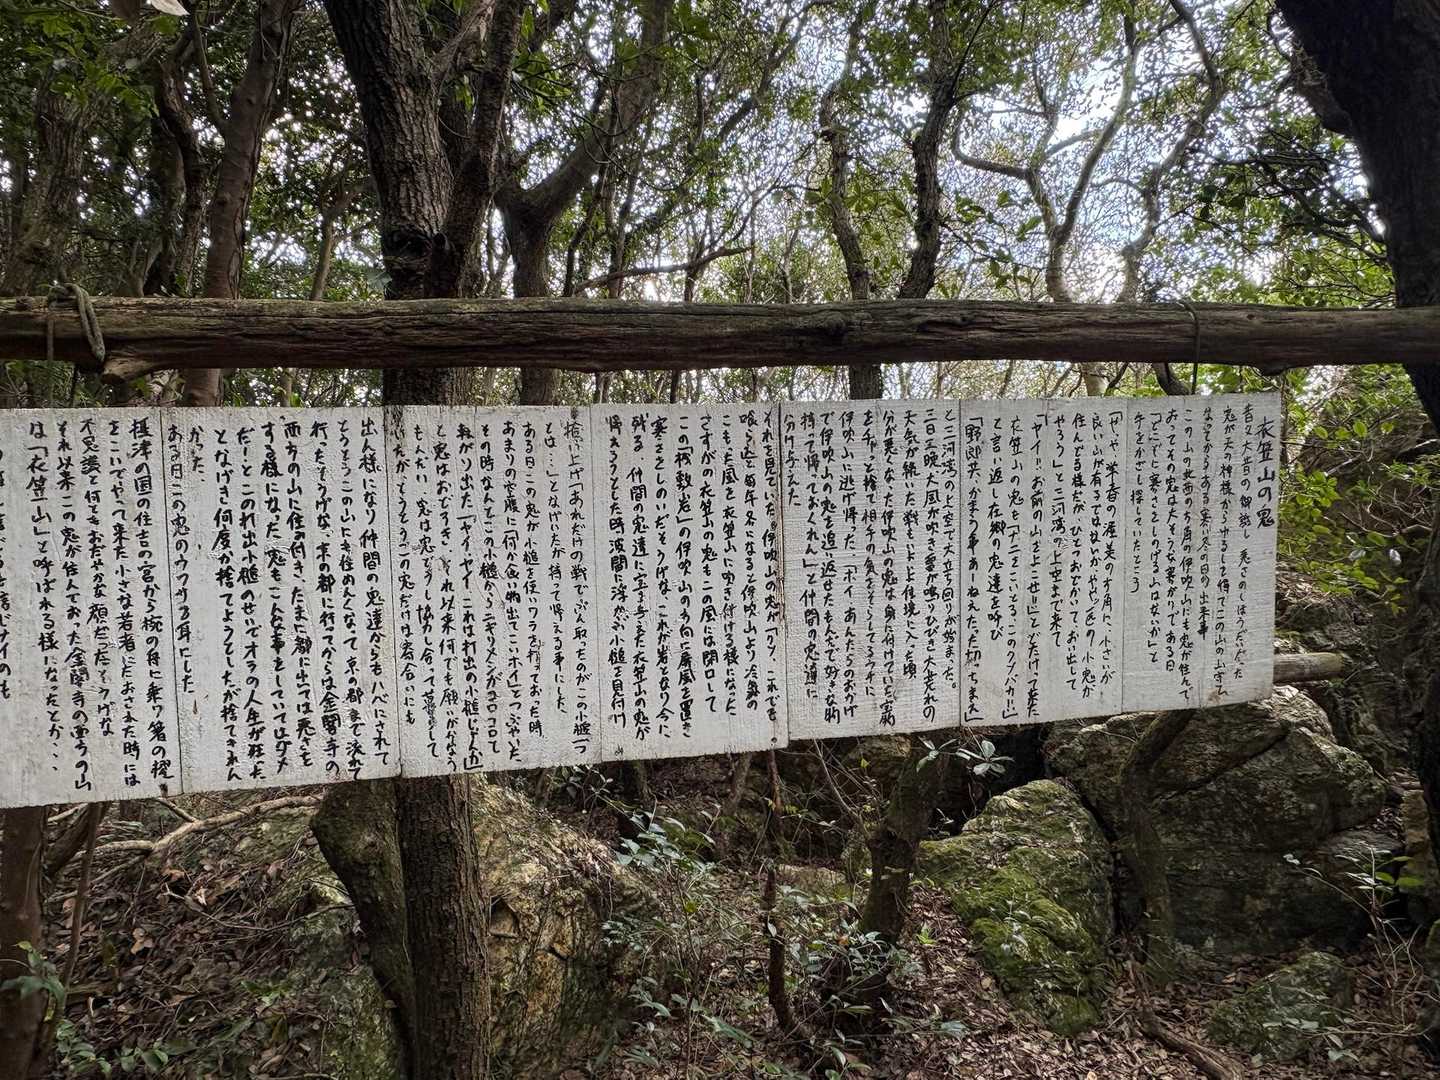 衣笠山の鬼
昔々大昔の御話し 悪さのしほうだいだった
鬼が天の神様からゆるしを得てこの山の山守に
なってからある寒い冬の日の出来事
この山の北西の方角の伊吹山にも鬼が住んで
おってその鬼は大そうな寒がりである日
「どこぞに寒さをしのげる山はないか」と
手をかざし探していたところ
「ややや、学春の渥美の方角に、小さいが
良い山が有るではないかややっ 匹の小鬼が
住んでる様だが、ひとつおどかいて、おい出して
やろう」と三河湾の上空まで来て
「ヤイ!!お前の山を よこせ!!」とどたけって来た
衣笠山の鬼も「ナニをこいとる、このクソバカ!!」
と言い返し在郷の鬼達を呼び
「野郎共、かまう事あーねえたたっ切っちまえ」
と三河湾の上空で大立ち回りが始まった。
三日三晩大風が吹き雲が鳴りひびき大荒れの
天気が続いた戦もいよいよ佳境に入った頃
分が悪くなった伊吹山の鬼は身に付けていた宝物
をチャッと捨て相手の気をそらしてるウチに
伊吹山に逃げ帰った「ホイ あんたらのおかげ
で伊吹山の鬼を追い返せたもんだで好きな物
持って帰っておくれん」と仲間の鬼達に
分け与えた
それを見ていた伊吹山の鬼が「クソ、これでも
喰らえ」と毎年冬になると伊吹山より冷気の
こもった風を衣笠山に吹き付ける様になった
さすがの衣笠山の鬼もこの風には閉口して
この「桟敷岩」の伊吹山の方向に屏風を置き
寒さをしのいだそうげな、これが岩となり今に
残る 仲間の鬼達に宝を与えた衣笠山の鬼が
帰えろうとした時波間に浮かぶ小槌を見付け
捨い上げ「あれだけの戦でぶん取ったのがこの小槌一つ
とは…」となげいたが持って帰える事にした
ある日、この鬼が小槌を使いワラを打っておった時
あまりの空腹に何か食い物出てこいホイ」とつぶやいた
その時なんとこの小槌からニギリメシがコロコロて
転がり出た「ヤイヤイ これは打出の小槌じゃんか」
と鬼はおどけき、それ以来何でも願いがかなう
もんだい 鬼は鬼どうし協力し合って暮らして
いたがとうとうこの鬼だけは寄合いにも
出ん様になり仲間の鬼達からもハバにされて
とうとうこの山にも住めんくなって京の都まで流れて
行ったそうげな、京の都に行ってからは金閣寺の
西方の山に住み付き、たまに都に出つは悪さを
する様になった 鬼も「こんな事をしていてはダメ
だ!とこの打出小槌のせいでオラの人生が狂った
となげき何度か捨てようとしたが捨てきれん
かった、
ある日この鬼のウワサを耳にした
摂津の国の住吉の宮から椀の舟に乗り箸の櫂
をこいでやって来た小さな若者にたおされた時には
不思議と何ともおだやかな顔だったそうげな
それ以来この鬼が住んでおった金閣寺の西方の山
は「衣笠山」と呼ばれる様になったとか、、